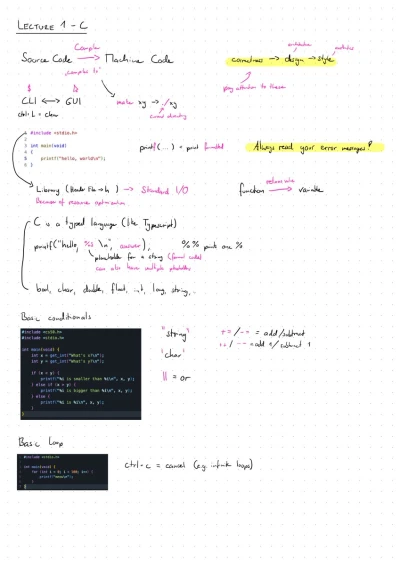 LECTURE 1 - C
Compiler
Source Code → Machine Code
"compiles to"
architecture
aesthetics
correctness → design → style
pay attention to these
$
CLI ↔ GUI
ctrl L = clear
make xy → ./xy
current directory
#include <stdio.h>
int main(void)
{
printf("hello, world\n");
}
printf(...) = print formatted
Always read your error messages!
Library (Header File → .h) → Standard I/O
Because of resource optimization
return value
function → variable
C is a typed language (like Typescript)
printf("hello, %s \n", answer);
%% prints one %
placeholder for a string (format code)
can also have multiple placeholders
bool, char, double, float, int, long, string, .
Basic conditionals
#include <cs50.h>
#include <stdio.h>
int main(void) {
int x = get_int("What's x?\n");
int y = get_int("What's y?\n");
if (x < y) {
printf("%i is smaller than %i\n", x, y);
} else if (x > y) {
printf("%i is bigger than %i\n", x, y);
} else {
printf("%i is %i\n", x, y);
}
}
"string"
'char'
|| = or
+= / -= = add/subtract
++ / -- = add 1/subtract 1
Basic Loop
#include <stdio.h>
int main(void) {
for (int i = 0; i < 100; i++) {
printf("meow\n");
}
}
ctrl-c = cancel (e.g. infinite loops)